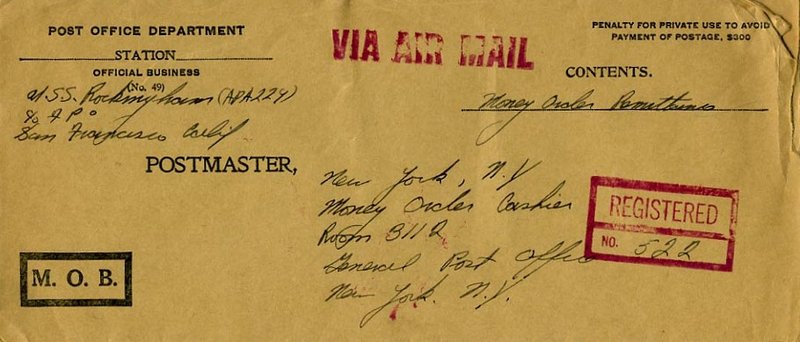 POST OFFICE DEPARTMENT
STATION
OFFICIAL BUSINESS
(No. 49)
U.S.S. Rockingham (APA229)
% F P O
San Francisco Calif
VIA AIR MAIL
PENALTY FOR PRIVATE USE TO AVOID
PAYMENT OF POSTAGE, $300
CONTENTS.
Money Order Remittances
POSTMASTER,
New York, N.Y
Money Order Cashier
Room 3112
General Post Office
New York. N.Y.
REGISTERED
NO. 522
M. O. B.